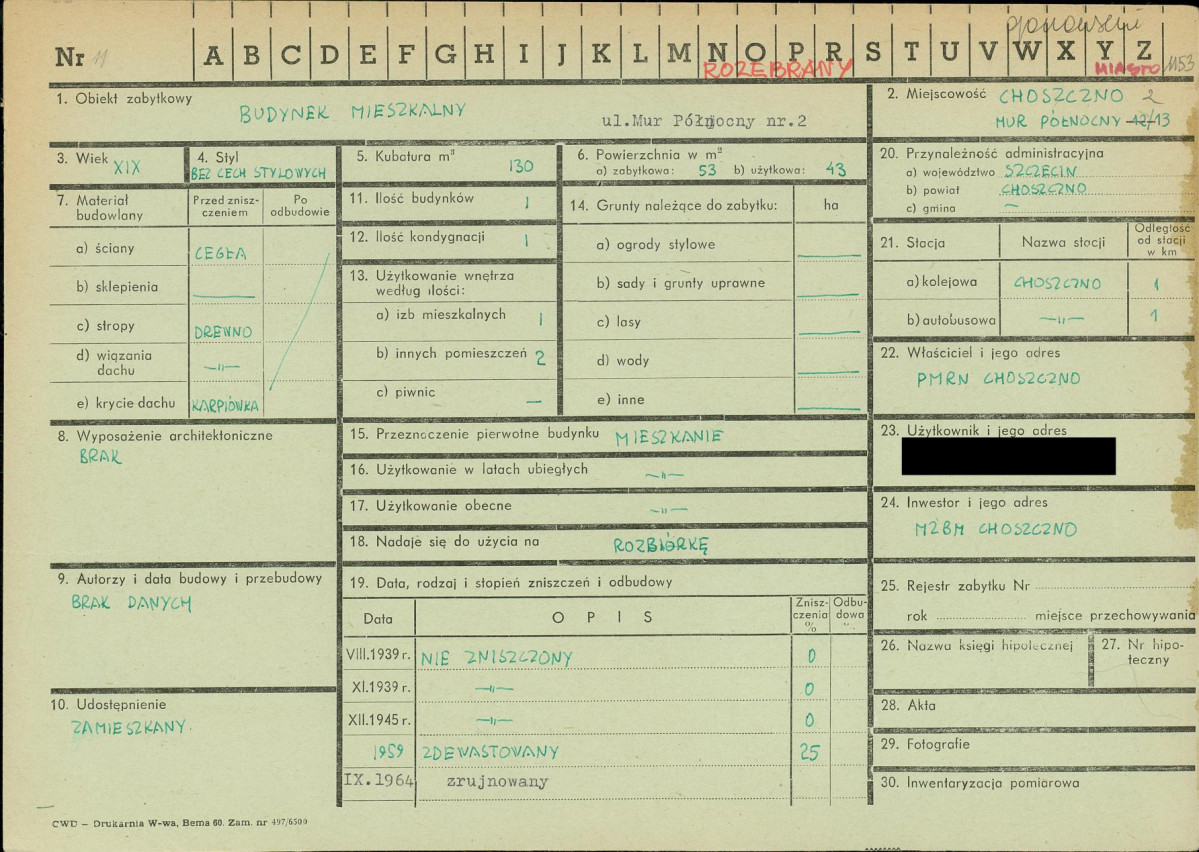 opracowanie
Nr 11 A B C D E F G H I J K L M N O P R S T U V W X Y Z
ROZEBRANY
MIASTO 1153
1. Obiekt zabytkowy
BUDYNEK MIESZKALNY
ul.Mur Północny nr.2
2. Miejscowość CHOSZCZNO 2
MUR PÓŁNOCNY 12/13
3. Wiek XIX
4. Styl
BEZ CECH STYLOWYCH
5. Kubatura m³ 130
6. Powierzchnia w m²
a) zabytkowa: 53 b) użytkowa: 43
7. Materiał budowlany
Przed zniszczeniem
Po odbudowie
a) ściany CEGŁA
b) sklepienia —
c) stropy DREWNO
d) wiązania dachu —„—
e) krycie dachu KARPIÓWKA
8. Wyposażenie architektoniczne
BRAK
9. Autorzy i data budowy i przebudowy
BRAK DANYCH
10. Udostępnienie
ZAMIESZKANY.
11. Ilość budynków 1
12. Ilość kondygnacji 1
13. Użytkowanie wnętrza
według ilości:
a) izb mieszkalnych 1
b) innych pomieszczeń 2
c) piwnic —
14. Grunty należące do zabytku: ha
a) ogrody stylowe —
b) sady i grunty uprawne —
c) lasy —
d) wody —
e) inne —
15. Przeznaczenie pierwotne budynku MIESZKANIE
16. Użytkowanie w latach ubiegłych —„—
17. Użytkowanie obecne —„—
18. Nadaje się do użycia na ROZBIÓRKĘ
19. Data, rodzaj i stopień zniszczeń i odbudowy
Data OPIS Zniszczenia % Odbudowa %
VIII.1939 r. NIE ZNISZCZONY 0
XI.1939 r. —„— 0
XII.1945 r. —„— 0
1959 ZDEWASTOWANY 25
IX.1964 zrujnowany
20. Przynależność administracyjna
a) województwo SZCZECIN
b) powiat CHOSZCZNO
c) gmina —
21. Stacja Nazwa stacji Odległość od stacji w km
a) kolejowa CHOSZCZNO 1
b) autobusowa —„— 1
22. Właściciel i jego adres
PMRN CHOSZCZNO
23. Użytkownik i jego adres
24. Inwestor i jego adres
MZBM CHOSZCZNO
25. Rejestr zabytku Nr
rok miejsce przechowywania
26. Nazwa księgi hipotecznej
27. Nr hipoteczny
28. Akta
29. Fotografie
30. Inwentaryzacja pomiarowa
CWD — Drukarnia W-wa, Bema 60. Zam. nr 497/6500